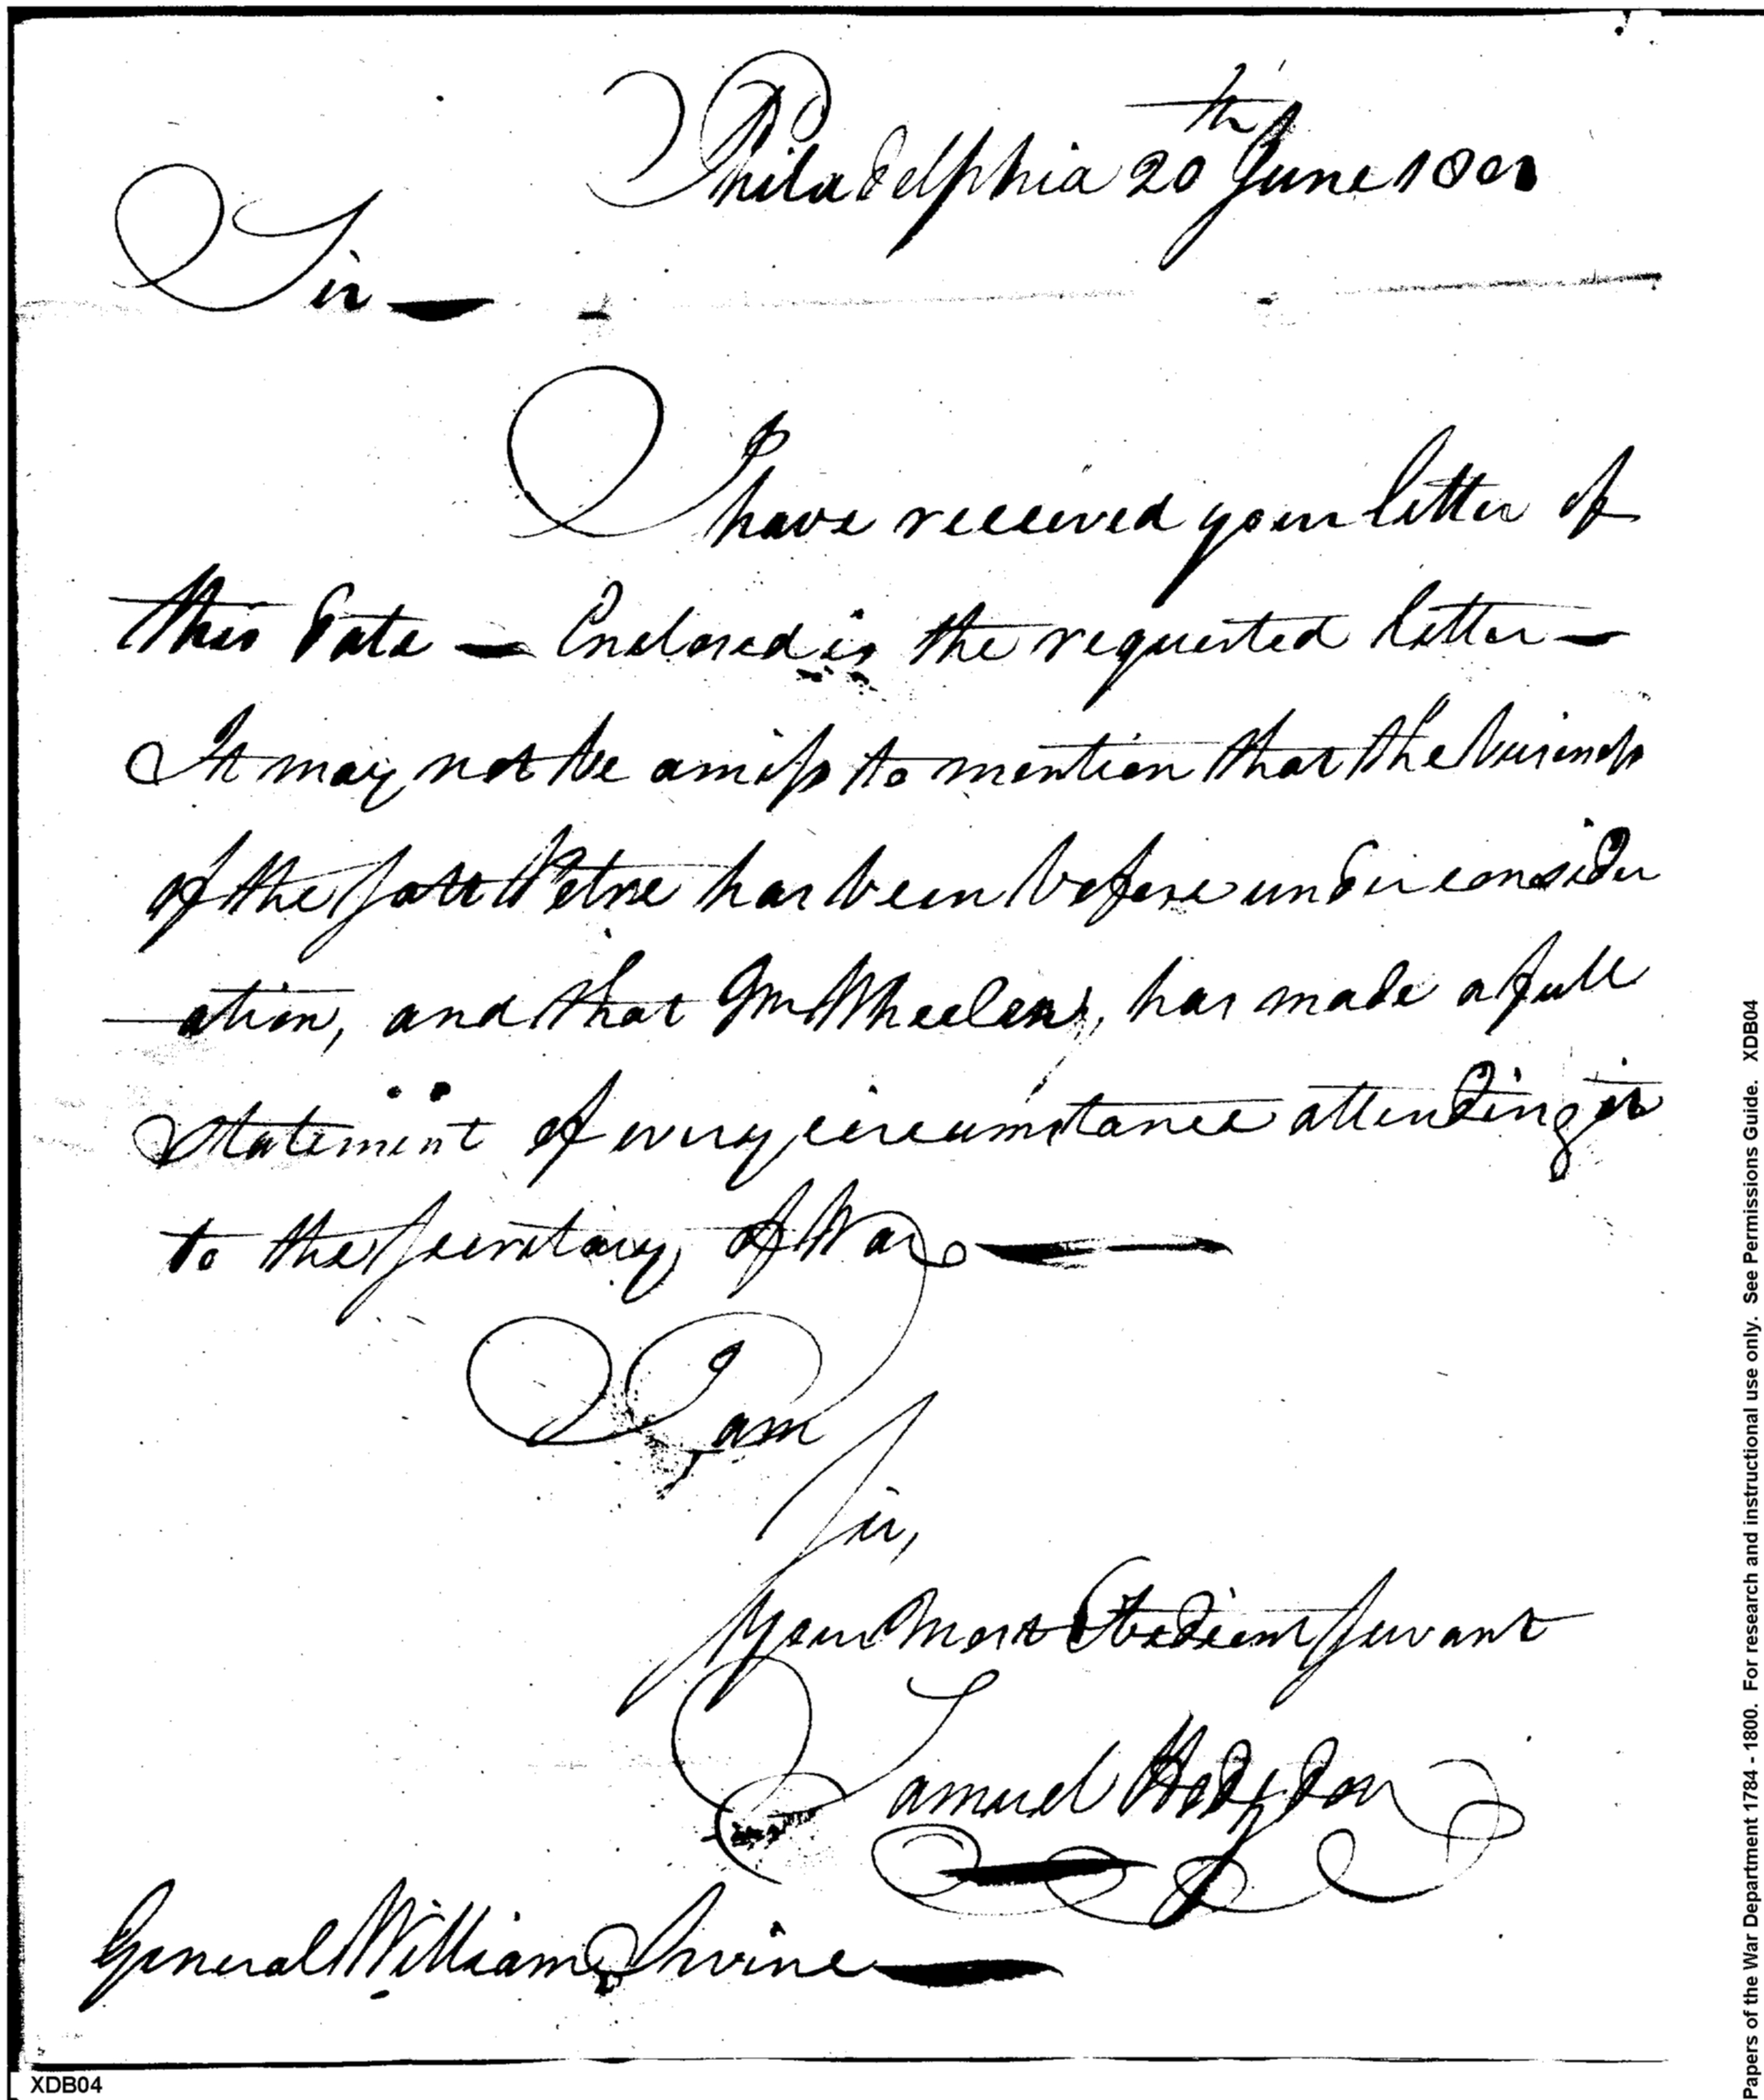 Philadelphia 20th June 1801
Sir —
I have received your letter of
this date — Enclosed is the requested letter —
It may not be amiss to mention that the business
of the Salt Petre has been before under consider
ation, and that Mr Wheelen, has made a full
Statement of every circumstance attending it
to the Secretary of War —
I am
Sir,
Your Most Obedient Servant
Samuel Hodgdon
General William Irvine —
XDB04
Papers of the War Department 1784 - 1800. For research and instructional use only. See Permissions Guide. XDB04